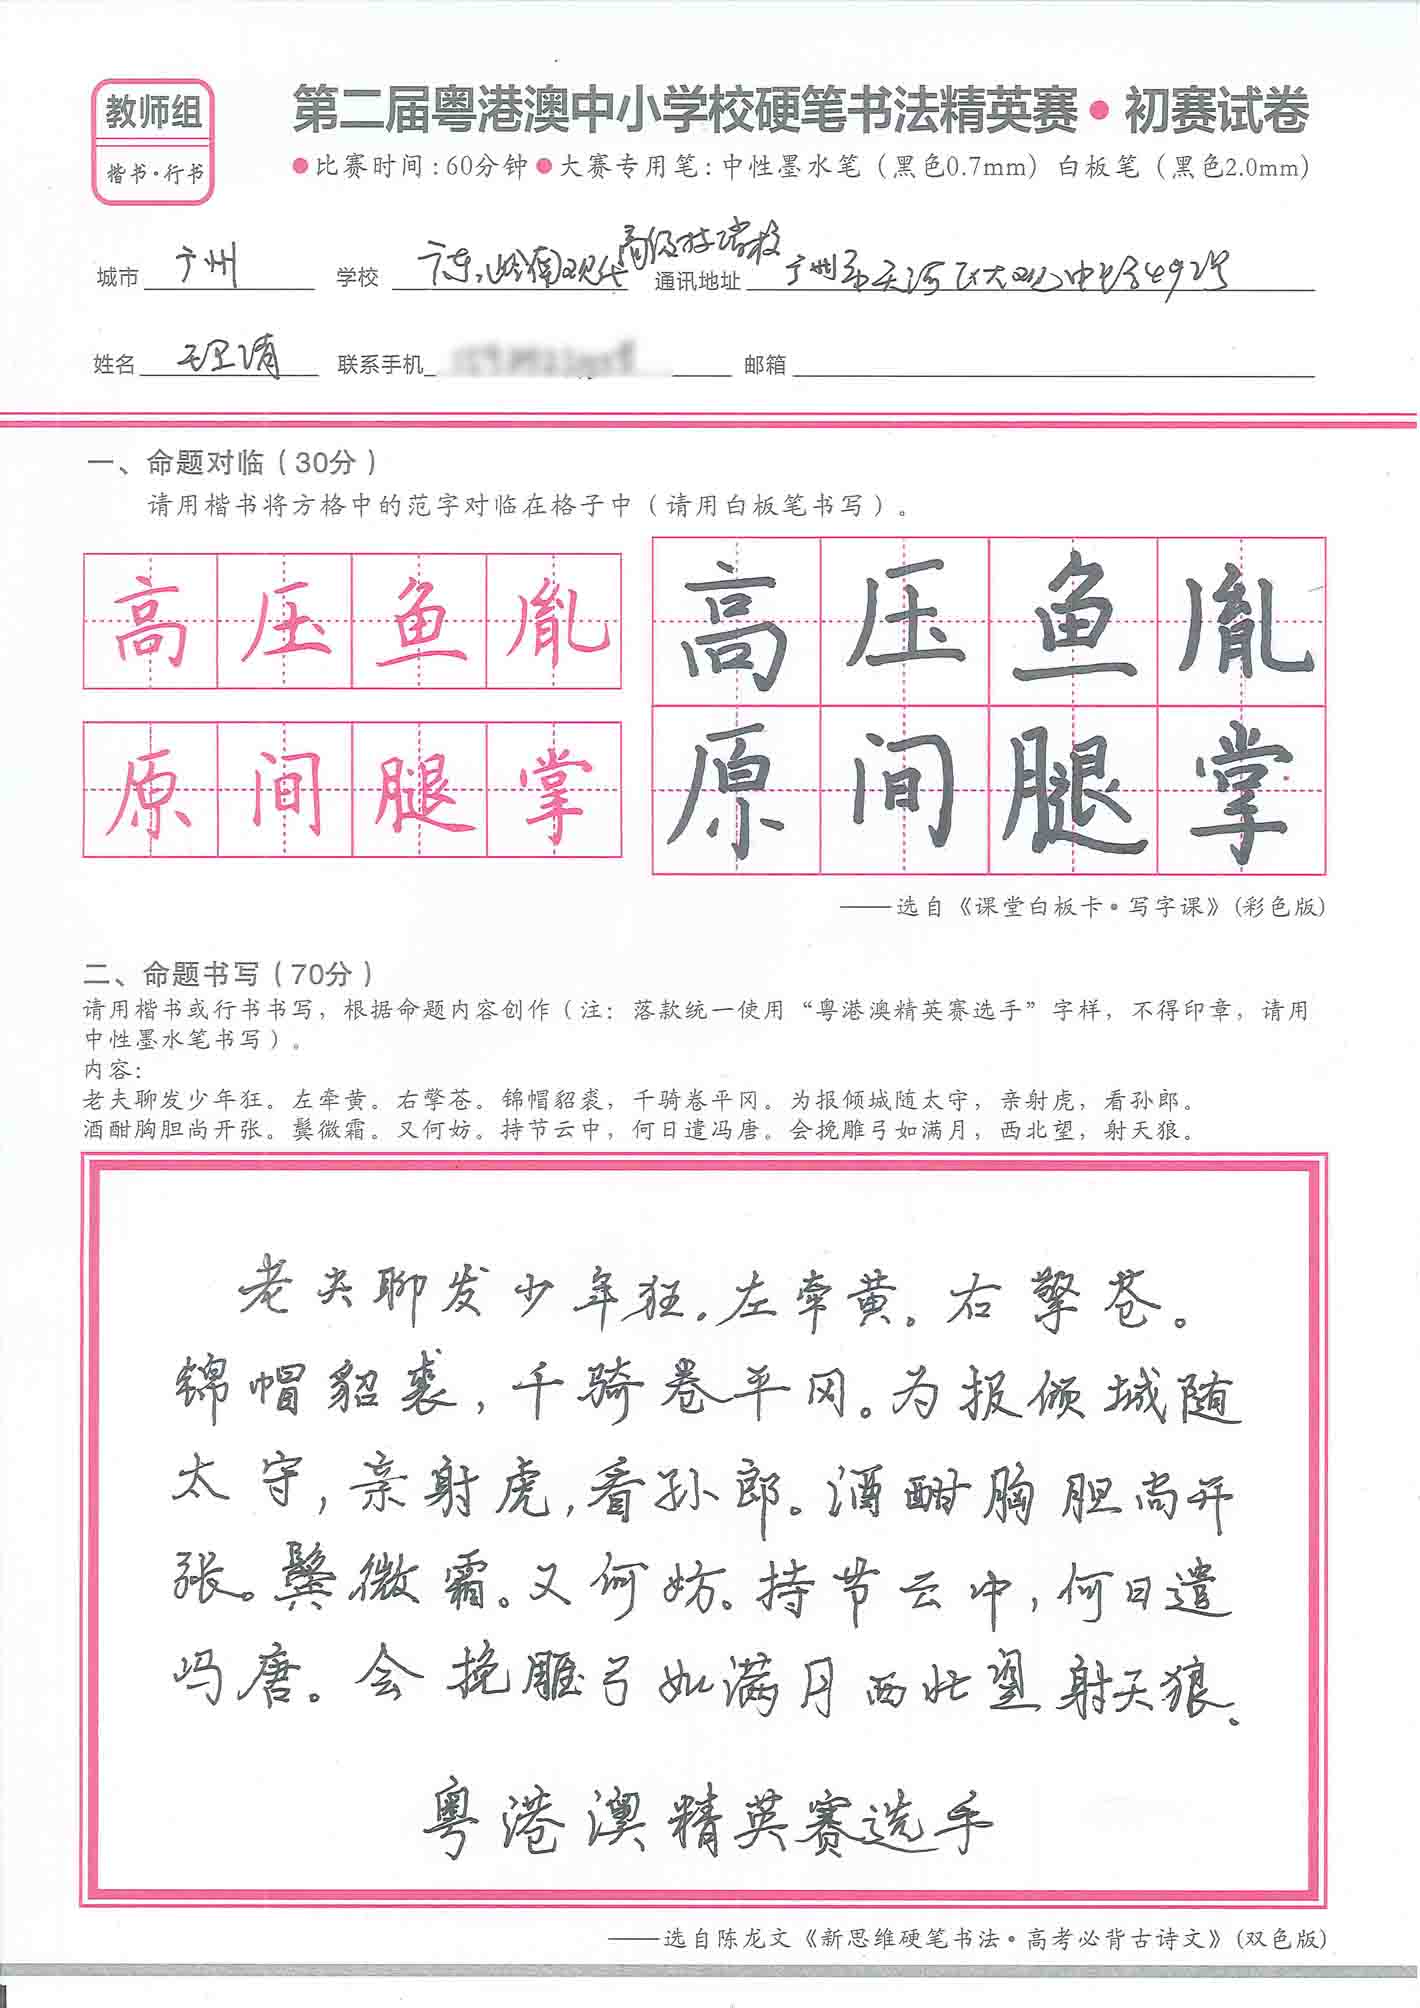 教师组
楷书·行书
第二届粤港澳中小学校硬笔书法精英赛·初赛试卷
●比赛时间：60分钟●大赛专用笔：中性墨水笔（黑色0.7mm）白板笔（黑色2.0mm）
城市 广州 学校 广东岭南现代高级技 校 通讯地址 广州市天河区大观中路492号
姓名 理清 联系手机 邮箱
一、命题对临（30分）
请用楷书将方格中的范字对临在格子中（请用白板笔书写）。
高压鱼胤 高压鱼胤
原间腿掌 原间腿掌
——选自《课堂白板卡·写字课》(彩色版)
二、命题书写（70分）
请用楷书或行书书写，根据命题内容创作（注：落款统一使用“粤港澳精英赛选手”字样，不得印章，请用
中性墨水笔书写）。
内容：
老夫聊发少年狂。左牵黄。右擎苍。锦帽貂裘，千骑卷平冈。为报倾城随太守，亲射虎，看孙郎。
酒酣胸胆尚开张。鬓微霜。又何妨。持节云中，何日遣冯唐。会挽雕弓如满月，西北望，射天狼。
老夫聊发少年狂。左牵黄。右擎苍。
锦帽貂裘，千骑卷平冈。为报倾城随
太守，亲射虎，看孙郎。酒酣胸胆尚开
张。鬓微霜。又何妨。持节云中，何日遣
冯唐。会挽雕弓如满月西北望射天狼。
粤港澳精英赛选手
——选自陈龙文《新思维硬笔书法·高考必背古诗文》(双色版)